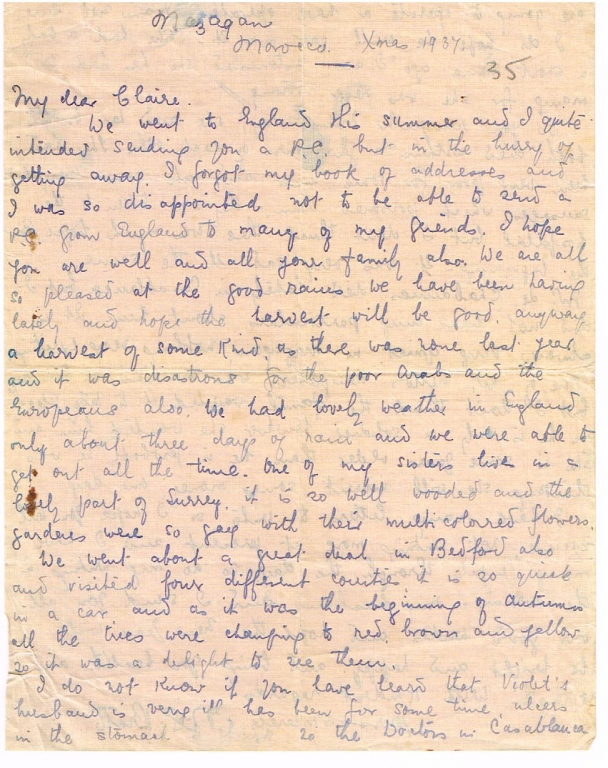 Mazagan
Morocco. Xmas 1937
35
My dear Claire.
We went to England this summer and I quite
intended sending you a P.C. but in the hurry of
getting away I forgot my book of addresses and
I was so disappointed not to be able to send a
P.C. from England to many of my friends. I hope
you are well and all your family also. We are all
so pleased at the good rains we have been having
lately and hope the harvest will be good, anyway
a harvest of some kind as there was none last year
and it was disastrous for the poor Arabs and the
Europeans also. We had lovely weather in England
only about three days of rain and we were able to
get out all the time. One of my sisters live in a
lovely part of Surrey. it is so well wooded and the
gardens were so gay with their multi colourred flowers.
We went about a great deal in Bedford also
and visited four different counties it is so quick
in a car and as it was the beginning of autumn
all the trees were changing to red, brown and yellow
so it was a delight to see them.
I do not know if you have heard that Violet's
husband is very ill has been for some time, ulcers
in the stomach so the Doctors in Casablanca